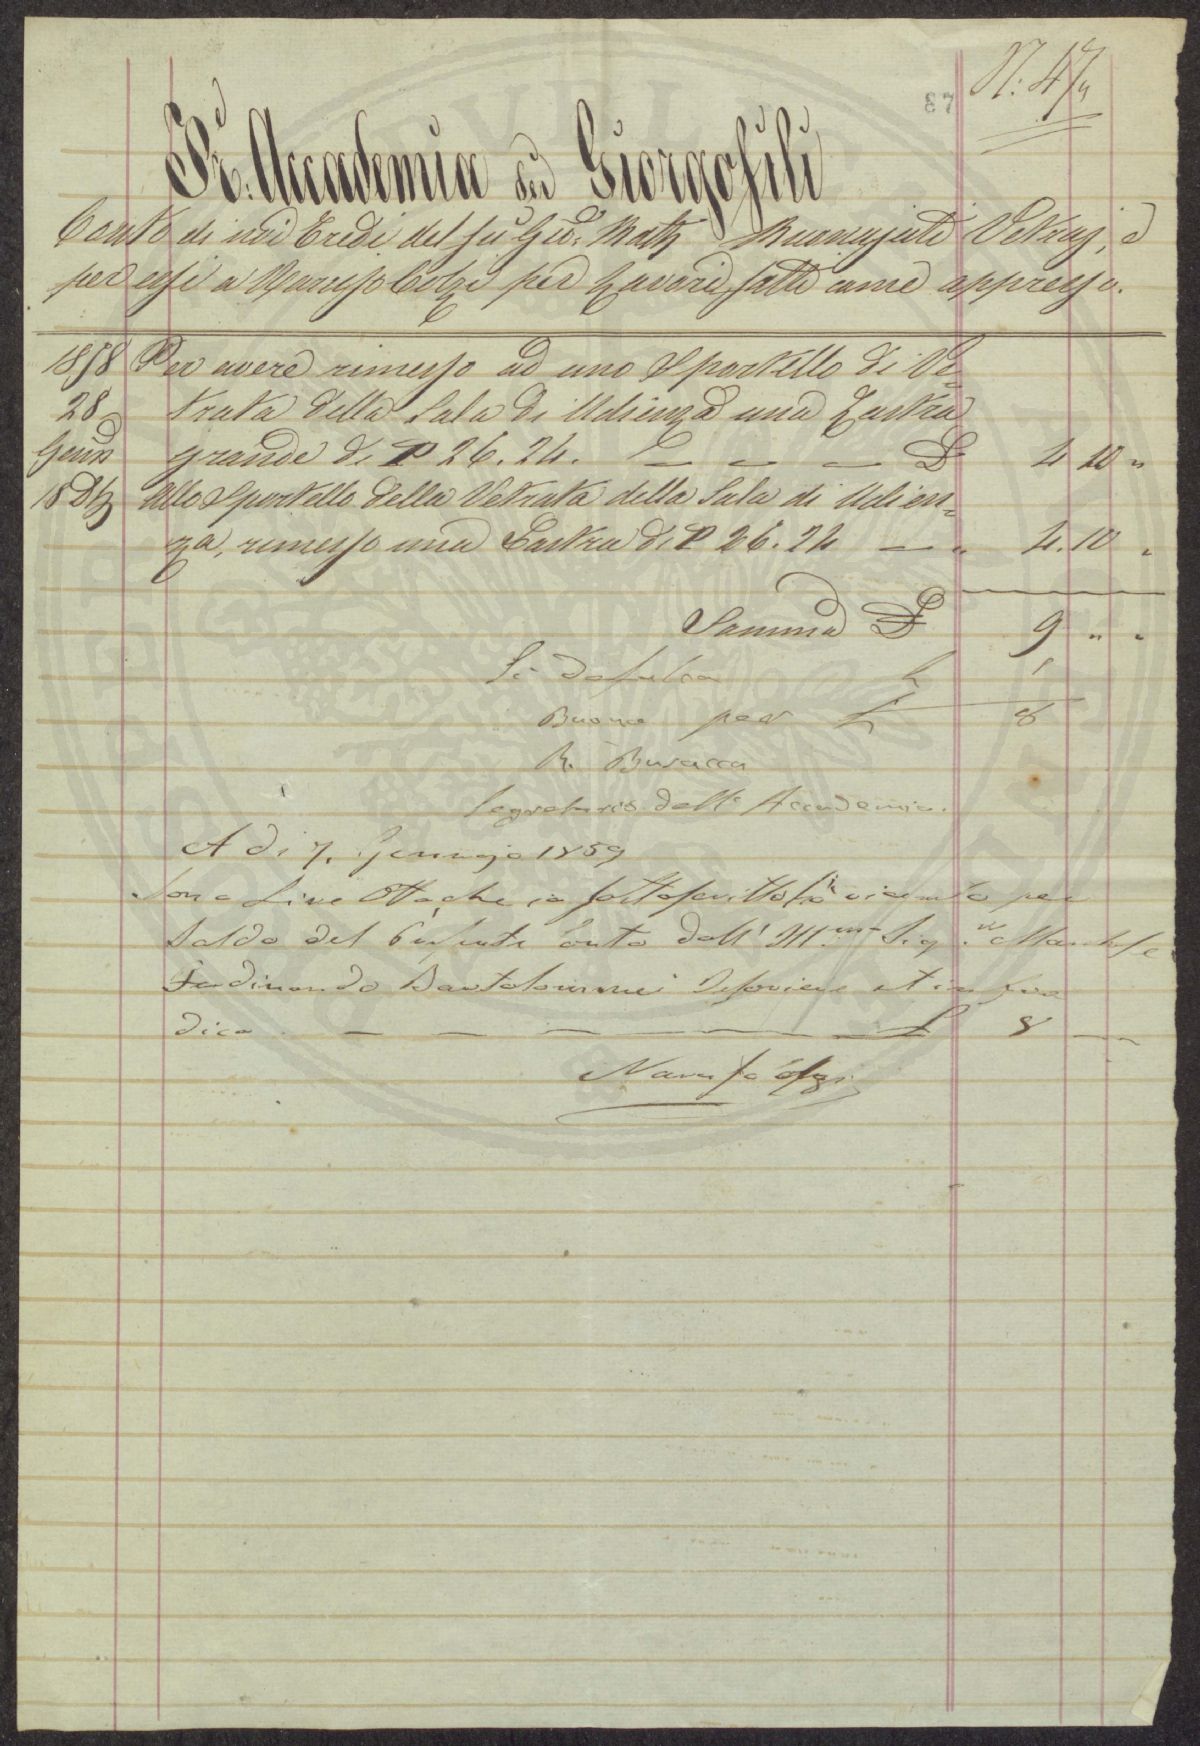 N: 47/4
87
R. Accademia dei Giorgofili
Conto di noi Eredi del fu Giu: Matt Buonajuti Vetraj, e
per essi a Narcisso Colzi per Lavori fatti come appresso.
1858 Per avere rimesso ad uno Sportello di Ve=
28 trata della Sala di Udienza una Lastra
Genn grande di P 26. 24. — — — — L 4 10 "
18 Dbre Allo Sportello della Vetrata della Sala di Udien=
za, rimesso una Lastra di P 26. 24 — " 4. 10 "
Somma L 9 " "
Si defalca L 1
Buono per L 8
R. Busacca
Segretario dell' Accademia.
A dì 7. Gennajo 1859
Sono Lire Otto che io sottoscritto ho ricevuto per
Saldo del presente Conto dall' Ill.mo Sig.r Marchese
Ferdinando Bartolommei
dico — — — — — — L 8 —
Narcisso Colzi